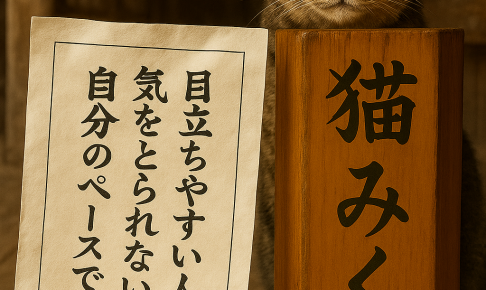 目立ちやすい
気をとられない
自分のペースで
猫みく